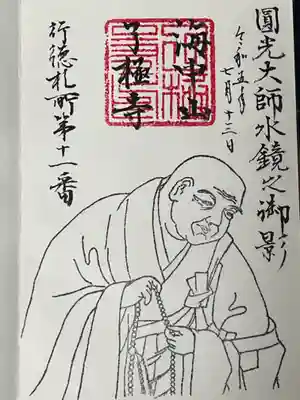 圓光大師水鏡之御影
令和五年
七月十三日
海中山
了極寺
行徳札所第十一番